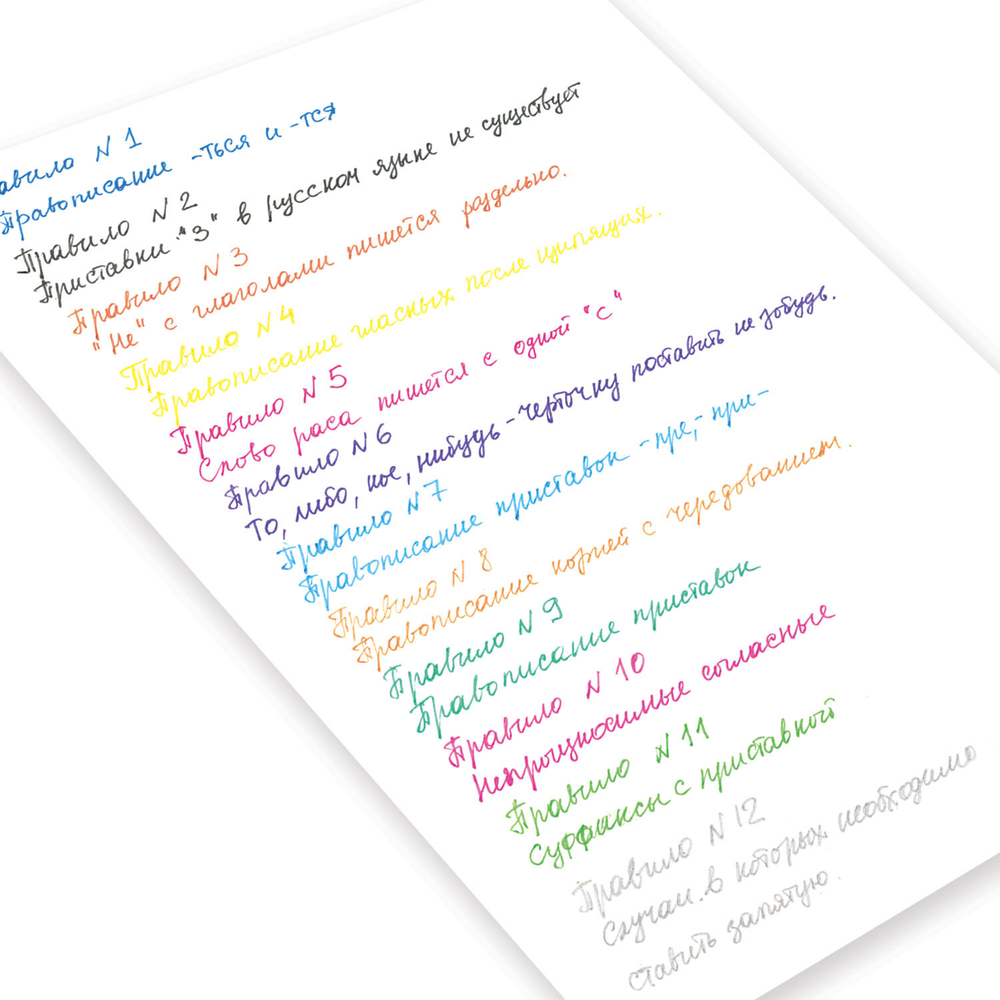 авило N 1
Правописание -ться и -тся
Правило N 2
Приставки "З" в русском языке не существует
Правило N 3
"Не" с глаголами пишется раздельно.
Правило N 4
Правописание гласных после щипящих.
Правило N 5
Слово раса пишется с одной "с"
Правило N 6
То, либо, кое, нибудь - черточку поставить не забудь.
Правило N 7
Правописание приставок -пре,- при-
Правило N 8
Правописание корней с чередованием.
Правило N 9
Правописание приставок
Правило N 10
Непроизносимые согласные
Правило N 11
Суффиксы с приставкой
Правило N 12
Случаи в которых необходимо
ставить запятую.